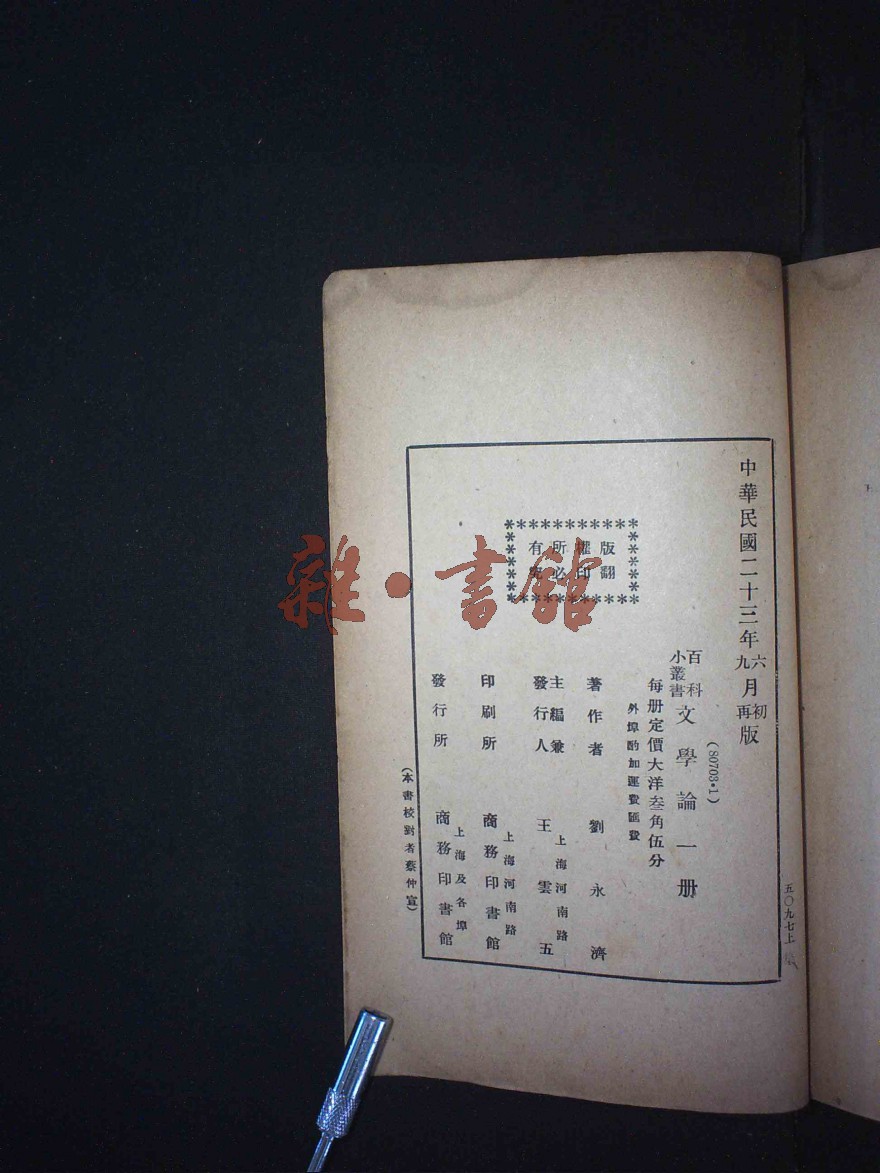 中華民國二十三年六月初版
九月再版
(80703·1)
百科小叢書
文學論一册
每册定價大洋叁角伍分
外埠酌加運費匯費
版權所有
翻印必究
著作者
劉永濟
主編兼發行人
上海河南路
王雲五
印刷所
上海河南路
商務印書館
發行所
上海及各埠
商務印書館
(本書校對者蔡仲宣)
五〇九七上
雜·書館